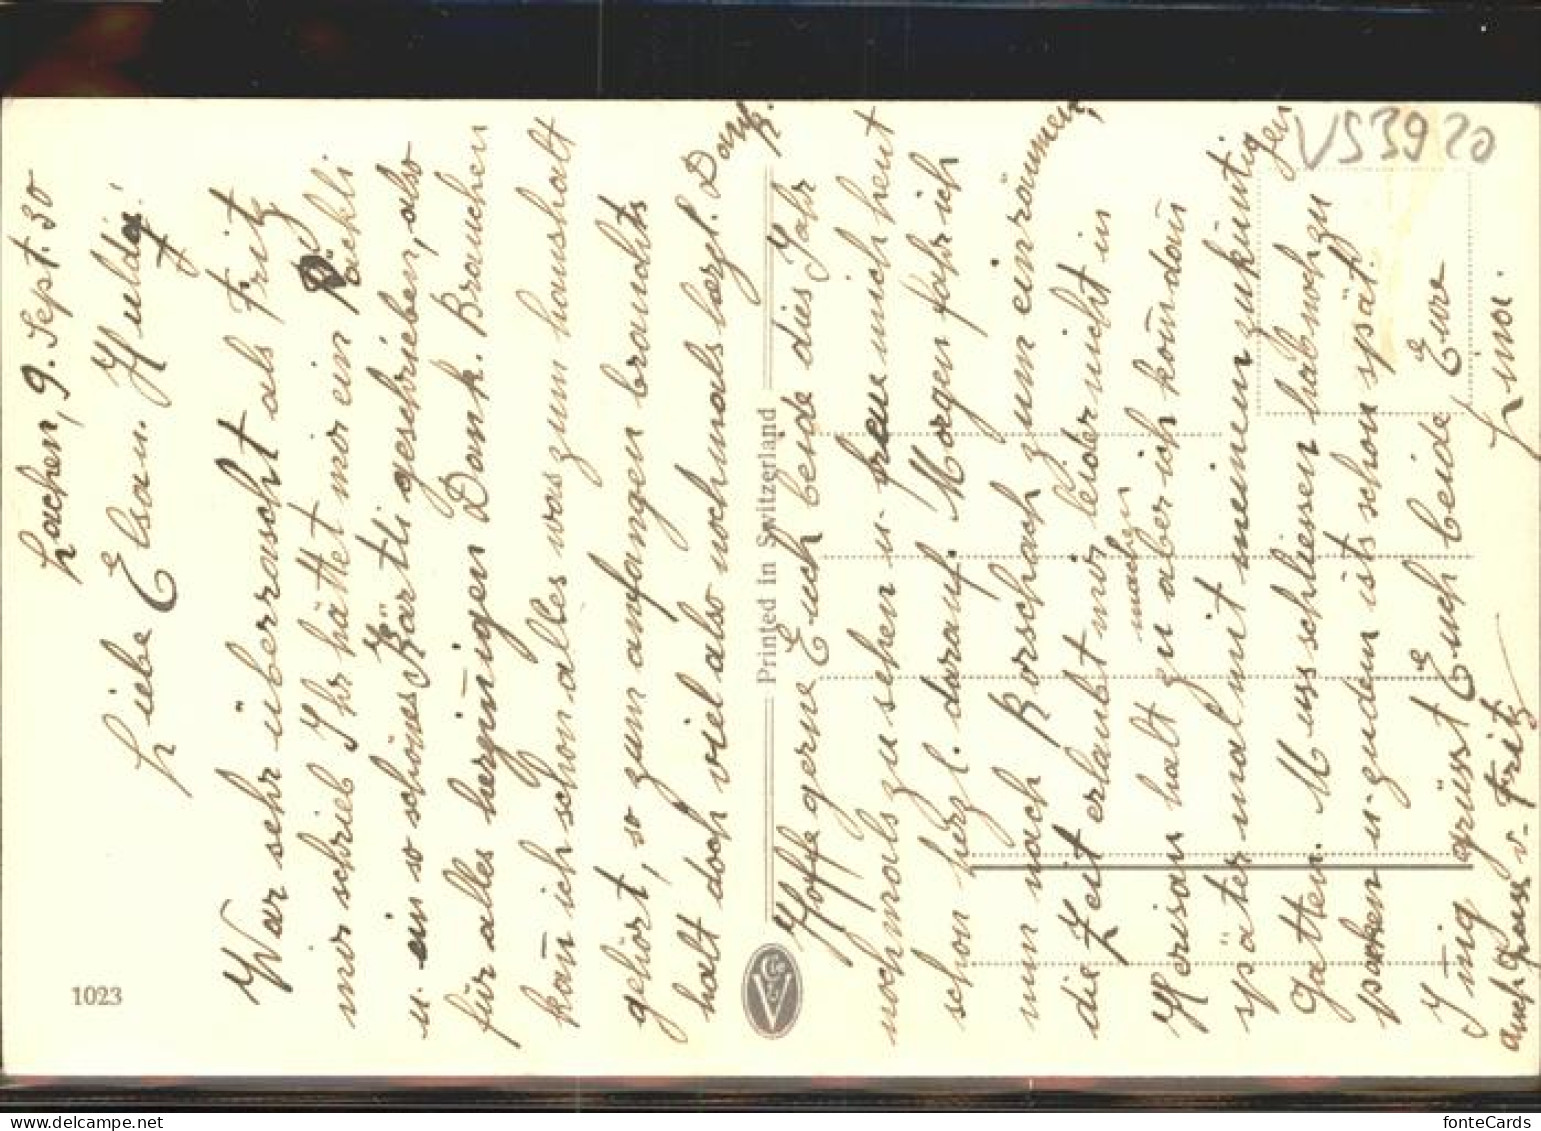 Lachen, 9. Sept. 30
Liebe Elsa u. Hulda!
War sehr überrascht als Fritz
mir schrieb Ihr hättet mir ein Päckli
u. ein so schönes Kärtli geschrieben, also
für alles herzinnigen Dank. Brauchen
kan̄ ich schon alles was zum haushalt
gehört, so zum anfangen brauchts
halt doch viel also nochmals herzl. Dank.
Hoffe gerne Euch beide dies Jahr
nochmals zu sehen u. freue mich heut
schon herzl. darauf. Morgen fahr ich
nun nach Rorschach zum einräumen,
die Zeit erlaubt mir leider nicht in
Herisau halt zu machen aber ich kom̄ dan̄
später mal mit meinem zukünftigen
Gatten. Muss schliessen hab noch zu
packen u. zudem ists schon spät.
Innig grüsst Euch beide Eure
auch Gruss v. Fritz
Printed in Switzerland
1023
VS3920
fonteCards